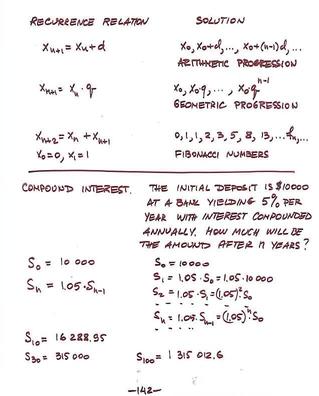 RECURRENCE RELATION SOLUTION
Xₙ₊₁ = Xₙ + d X₀, X₀+d, ..., X₀+(n-1)d, ...
ARITHMETIC PROGRESSION
Xₙ₊₁ = Xₙ · q X₀, X₀·q, ..., X₀·qⁿ⁻¹
GEOMETRIC PROGRESSION
Xₙ₊₂ = Xₙ + Xₙ₊₁ 0, 1, 1, 2, 3, 5, 8, 13, ... fₙ, ...
X₀ = 0, X₁ = 1 FIBONACCI NUMBERS
COMPOUND INTEREST. THE INITIAL DEPOSIT IS $10000
AT A BANK YIELDING 5% PER
YEAR WITH INTEREST COMPOUNDED
ANNUALLY. HOW MUCH WILL BE
THE AMOUND AFTER n YEARS?
S₀ = 10 000 S₀ = 10000
Sₙ = 1.05 · Sₙ₋₁ S₁ = 1.05 · S₀ = 1.05 · 10 000
S₂ = 1.05 · S₁ = (1.05)² · S₀
Sₙ = 1.05 · Sₙ₋₁ = (1.05)ⁿ · S₀
S₁₀ = 16 288.95
S₃₀ = 315 000 S₁₀₀ = 1 315 012.6
—142—